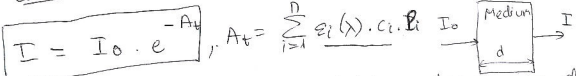 I = I₀ . e^{-A_t} , A_t = \sum_{i=1}^{n} ε_i(λ) . c_i . ℓ_i I₀ Medium d I